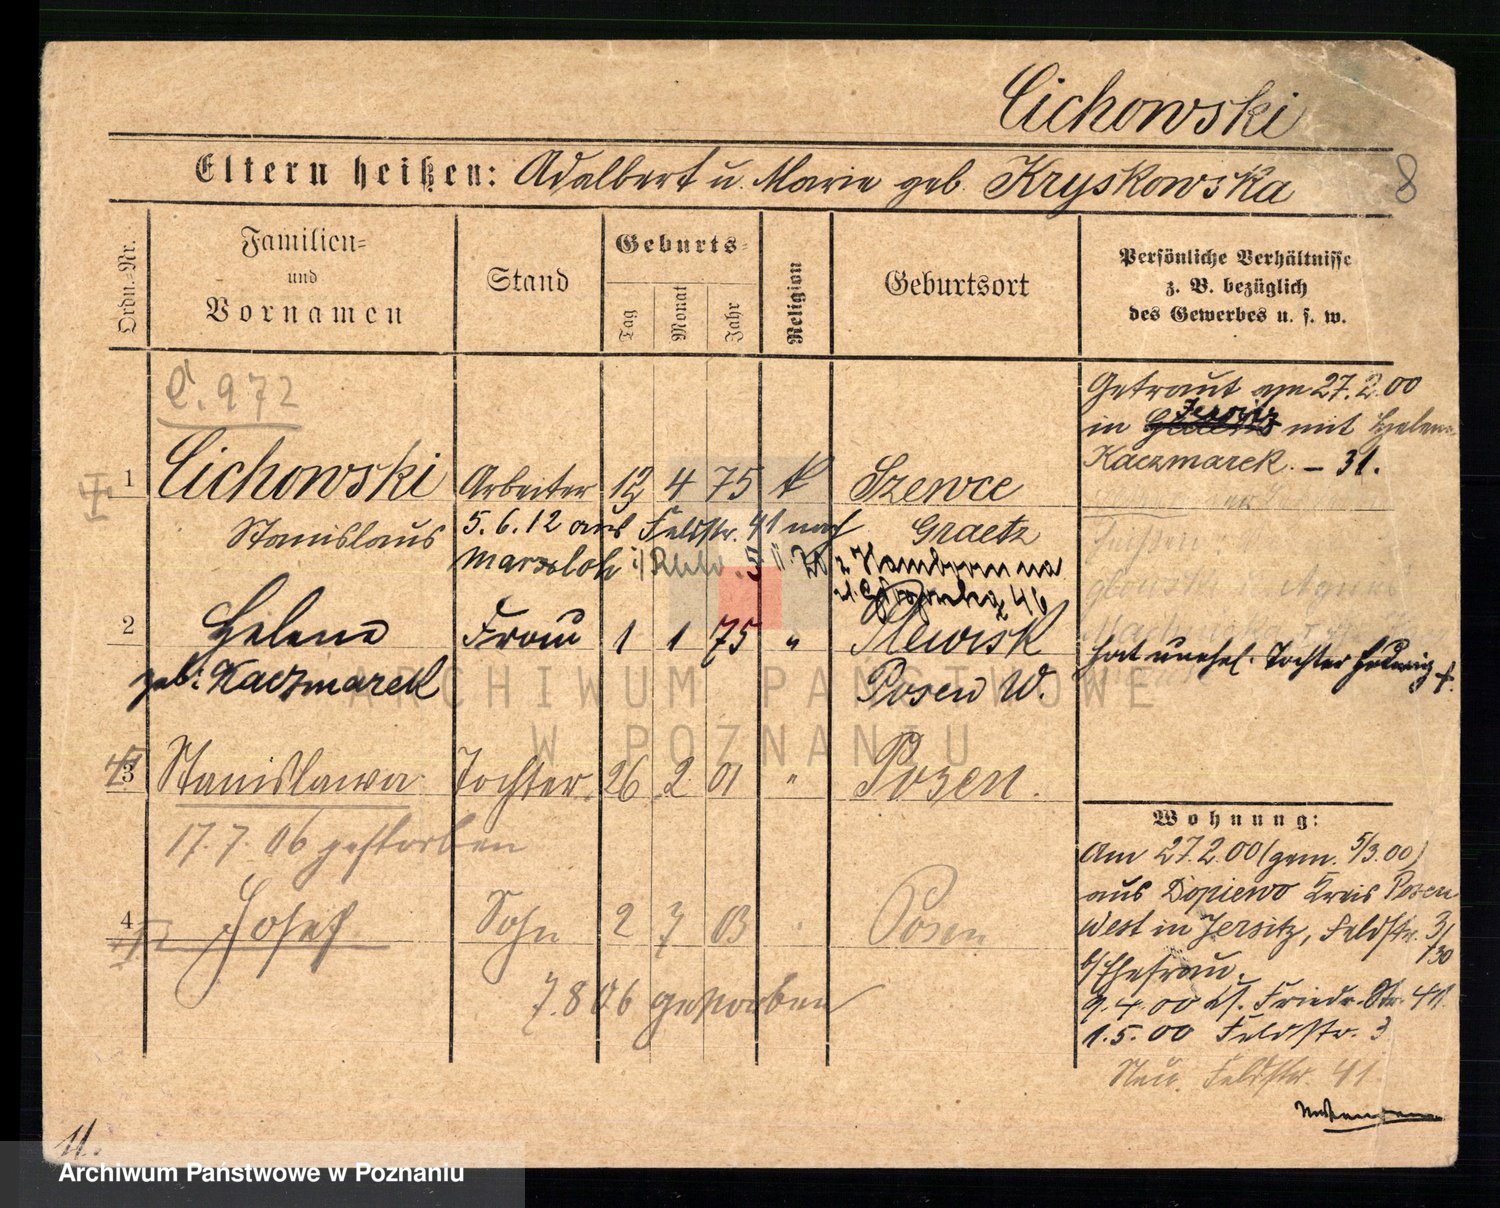 Cichowski
Eltern heißen: Adalbert u. Marie geb. Kryskowska
8
Ordn.=Nr.
Familien=
und
Vornamen
Stand
Geburts=
Tag
Monat
Jahr
Religion
Geburtsort
Persönliche Verhältnisse
z. B. bezüglich
des Gewerbes u. s. w.
C. 972
Getraut am 27.2.00
in Jersitz mit Helene
Kaczmarek. – 31.
1 Cichowski Arbeiter 12 4 75 k Szewce
Stanislaus 5.6.12 aus Feldstr. 41 nach Graetz
Marxloh
Hamborn
46
2 Helene Frau 1 1 75 " Plewisk
geb. Kaczmarek Posen W.
hat unehel. Tochter Hedwig †.
3 Stanislawa Tochter 26 2 01 " Posen.
17.7.06 gestorben
4 Josef Sohn 2 7 03 Posen
7.8 06 gestorben
Wohnung:
Am 27.2.00 (gem. 5/3.00)
aus Dopiewo Kreis Posen
West in Jersitz, Feldstr. 3/
b/Ehefrau. 730
9.4.00 Friedr. Str. 41.
1.5.00 Feldstr. 3
Neu. Feldstr. 41
11.
ARCHIWUM PAŃSTWOWE
W POZNANIU
Archiwum Państwowe w Poznaniu